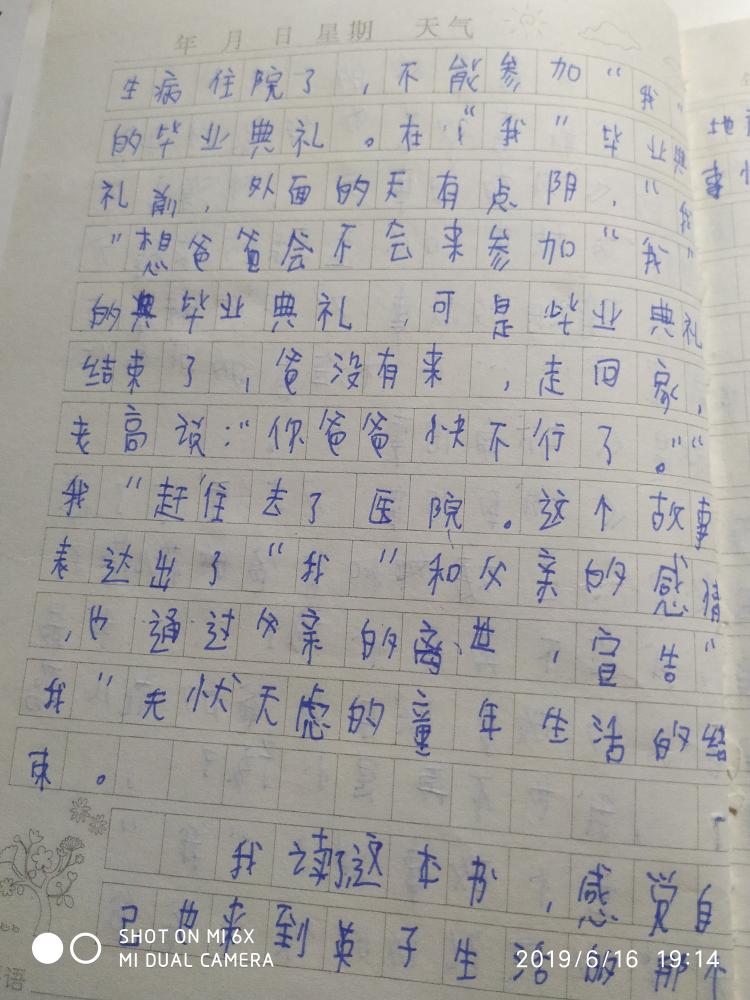 年 月 日 星期 天气
生病住院了，不能参加“我”
的毕业典礼。在“我”毕业典
礼前，外面的天有点阴，“我
”想爸爸会不会来参加“我”
的毕业典礼，可是毕业典礼
结束了，爸没有来，走回家，
老高说：“你爸爸快不行了。”“
我”赶住去了医院。这个故事
表达出了“我”和父亲的感情
，也通过父亲的离世，宣告“
我”无忧无虑的童年生活的结
束。
我读了这本书，感觉自
己也来到英子生活的那个
地
事
语
SHOT ON MI 6X
MI DUAL CAMERA
2019/6/16 19:14